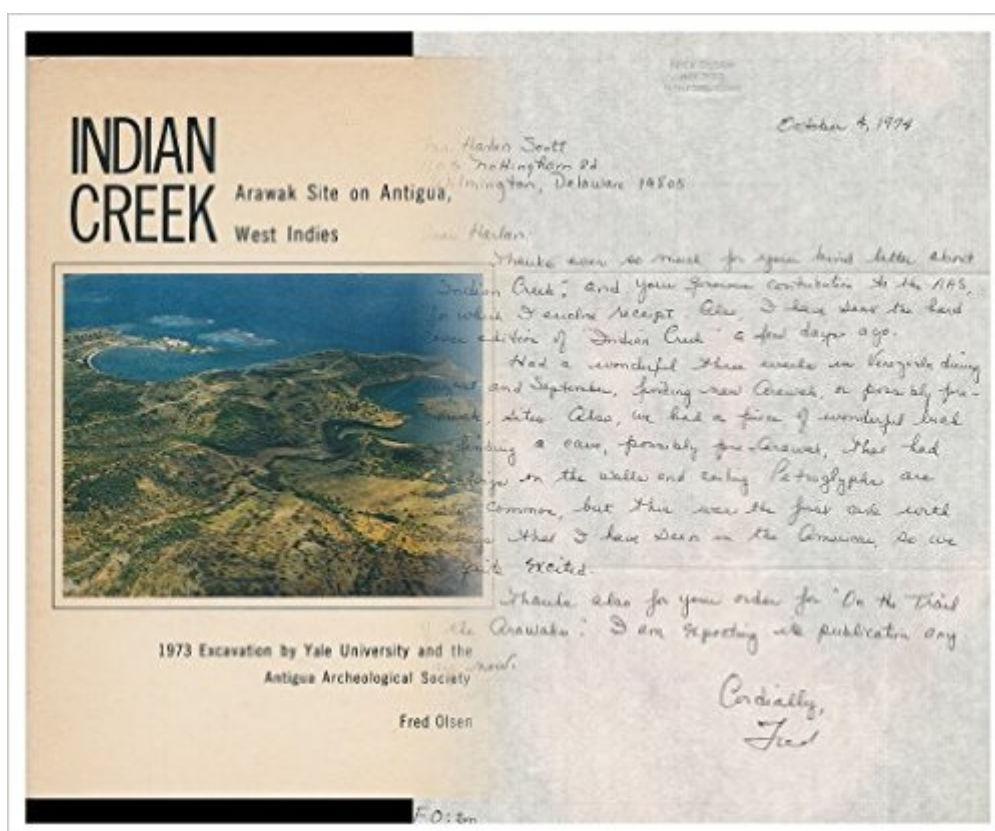 INDIAN
CREEK
Arawak Site on Antigua,
West Indies
1973 Excavation by Yale University and the
Antigua Archeological Society
Fred Olsen
October 4, 1974
Harlan Scott
Nottingham Rd
Wilmington, Delaware 19803
Harlan:
Thanks ever so much for your kind letter about
"Indian Creek", and your generous contribution to the AAS,
for which I enclose receipt. Also, I have sent the hard
cover edition of "Indian Creek" a few days ago.
Had a wonderful three weeks in Venezuela during
August and September, finding new Arawak, or possibly pre-
Arawak, sites. Also, we had a piece of wonderful luck
finding a cave, possibly pre-Arawak, that had
on the walls and ceiling. Petroglyphs are
common, but this was the first cave with
that I have seen in the Americas, so we
quite excited.
Thanks also for your order for "On the Trail
of the Arawaks." I am expecting its publication any
now.
Cordially,
Fred
FO:sm